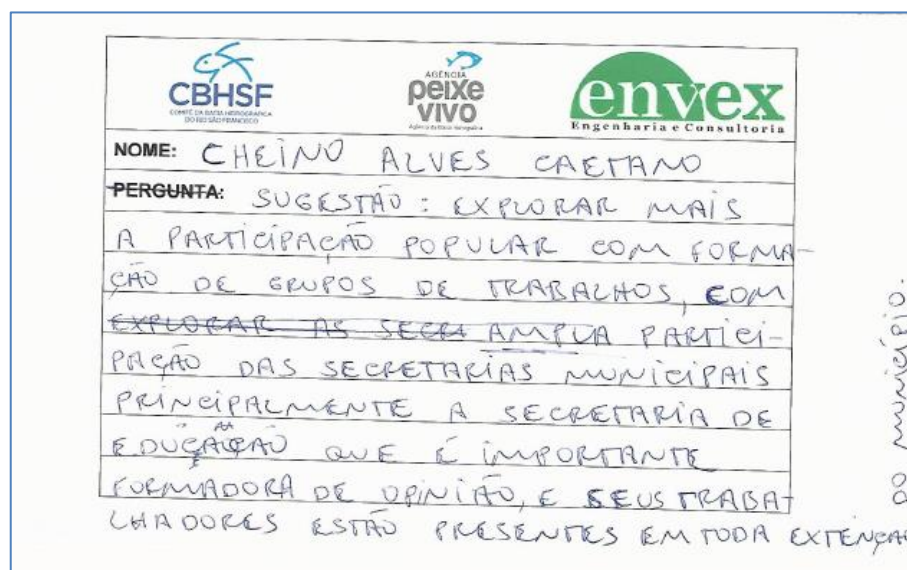 CBHSF
COMITÊ DA BACIA HIDROGRÁFICA
DO RIO SÃO FRANCISCO
AGÊNCIA
peixe
vivo
envex
Engenharia e Consultoria
NOME: CHEINO ALVES CAETANO
PERGUNTA: SUGESTÃO: EXPLORAR MAIS
A PARTICIPAÇÃO POPULAR COM FORMA-
ÇÃO DE GRUPOS DE TRABALHOS, COM
EXPLORAR AS SECR AMPLA PARTICI-
PAÇÃO DAS SECRETARIAS MUNICIPAIS
PRINCIPALMENTE A SECRETARIA DE
EDUCAÇÃO QUE É IMPORTANTE
FORMADORA DE OPINIÃO, E SEUS TRABA-
LHADORES ESTÃO PRESENTES EM TODA EXTENÇÃO
DO MUNICÍPIO.